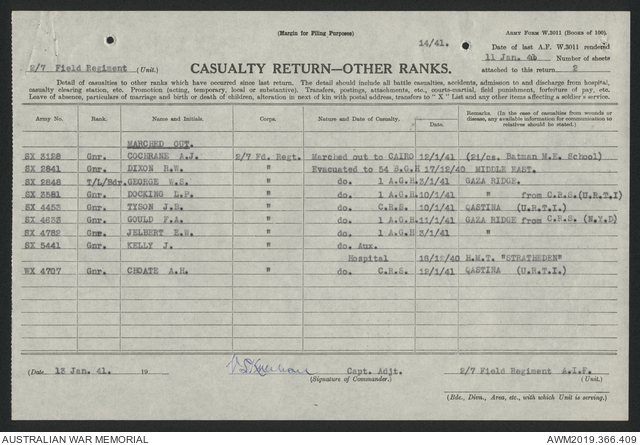 (Margin for Filing Purposes)
ARMY FORM W.3011 (BOOKS OF 100).
14/41.
Date of last A.F. W.3011 rendered
11 Jan. 4
2/7 Field Regiment (Unit.)
Number of sheets
attached to this return 2
CASUALTY RETURN—OTHER RANKS.
Detail of casualties to other ranks which have occurred since last return. The detail should include all battle casualties, accidents, admission to and discharge from hospital,
casualty clearing station, etc. Promotion (acting, temporary, local or substantive). Transfers, postings, attachments, etc., courts-martial, field punishment, forfeiture of pay, etc.
Leave of absence, particulars of marriage and birth or death of children, alteration in next of kin with postal address, transfers to "X" List and any other items affecting a soldier's service.
Army No. Rank. Names and Initials. Corps. Nature and Date of Casualty. Date. Remarks. (In the case of casualties from wounds or disease, any available information for communication to relatives should be stated.)
MARCHED OUT.
SX 3128 Gnr. COCHRANE A.J. 2/7 Fd. Regt. Marched out to CAIRO 12/1/41 (21/cs. Batman M.E. School)
SX 2841 Gnr. DIXON R.W. " Evacuated to 54 B.G.H 17/12/40 MIDDLE EAST.
SX 2848 T/L/Bdr. GEORGE W.S. " do. 1 A.G.H 3/1/41 GAZA RIDGE.
SX 3581 Gnr. DOCKING L.P. " do. 1 A.G.H 10/1/41 " from C.R.S.(U.R.T.I)
SX 4453 Gnr. TYSON J.S. " do. C.R.S. 10/1/41 QASTINA (U.R.T.I.)
SX 4633 Gnr. GOULD F.A. " do. 1 A.G.H 11/1/41 GAZA RIDGE from C.R.S. (N.Y.D)
SX 4782 Gnr. JELBERT E.W. " do. 1 A.G.H 3/1/41 "
SX 5441 Gnr. KELLY J. " do. Aux.
Hospital 16/12/40 H.M.T. "STRATHEDEN"
WX 4707 Gnr. CHOATE A.H. " do. C.R.S. 12/1/41 QASTINA (U.R.T.I.)
(Date 13 Jan. 41. 19
Capt. Adjt.
2/7 Field Regiment A.I.F.
(Signature of Commander.)
(Unit.)
(Bde., Divn., Area, etc., with which Unit is serving.)
AUSTRALIAN WAR MEMORIAL
AWM2019.366.409